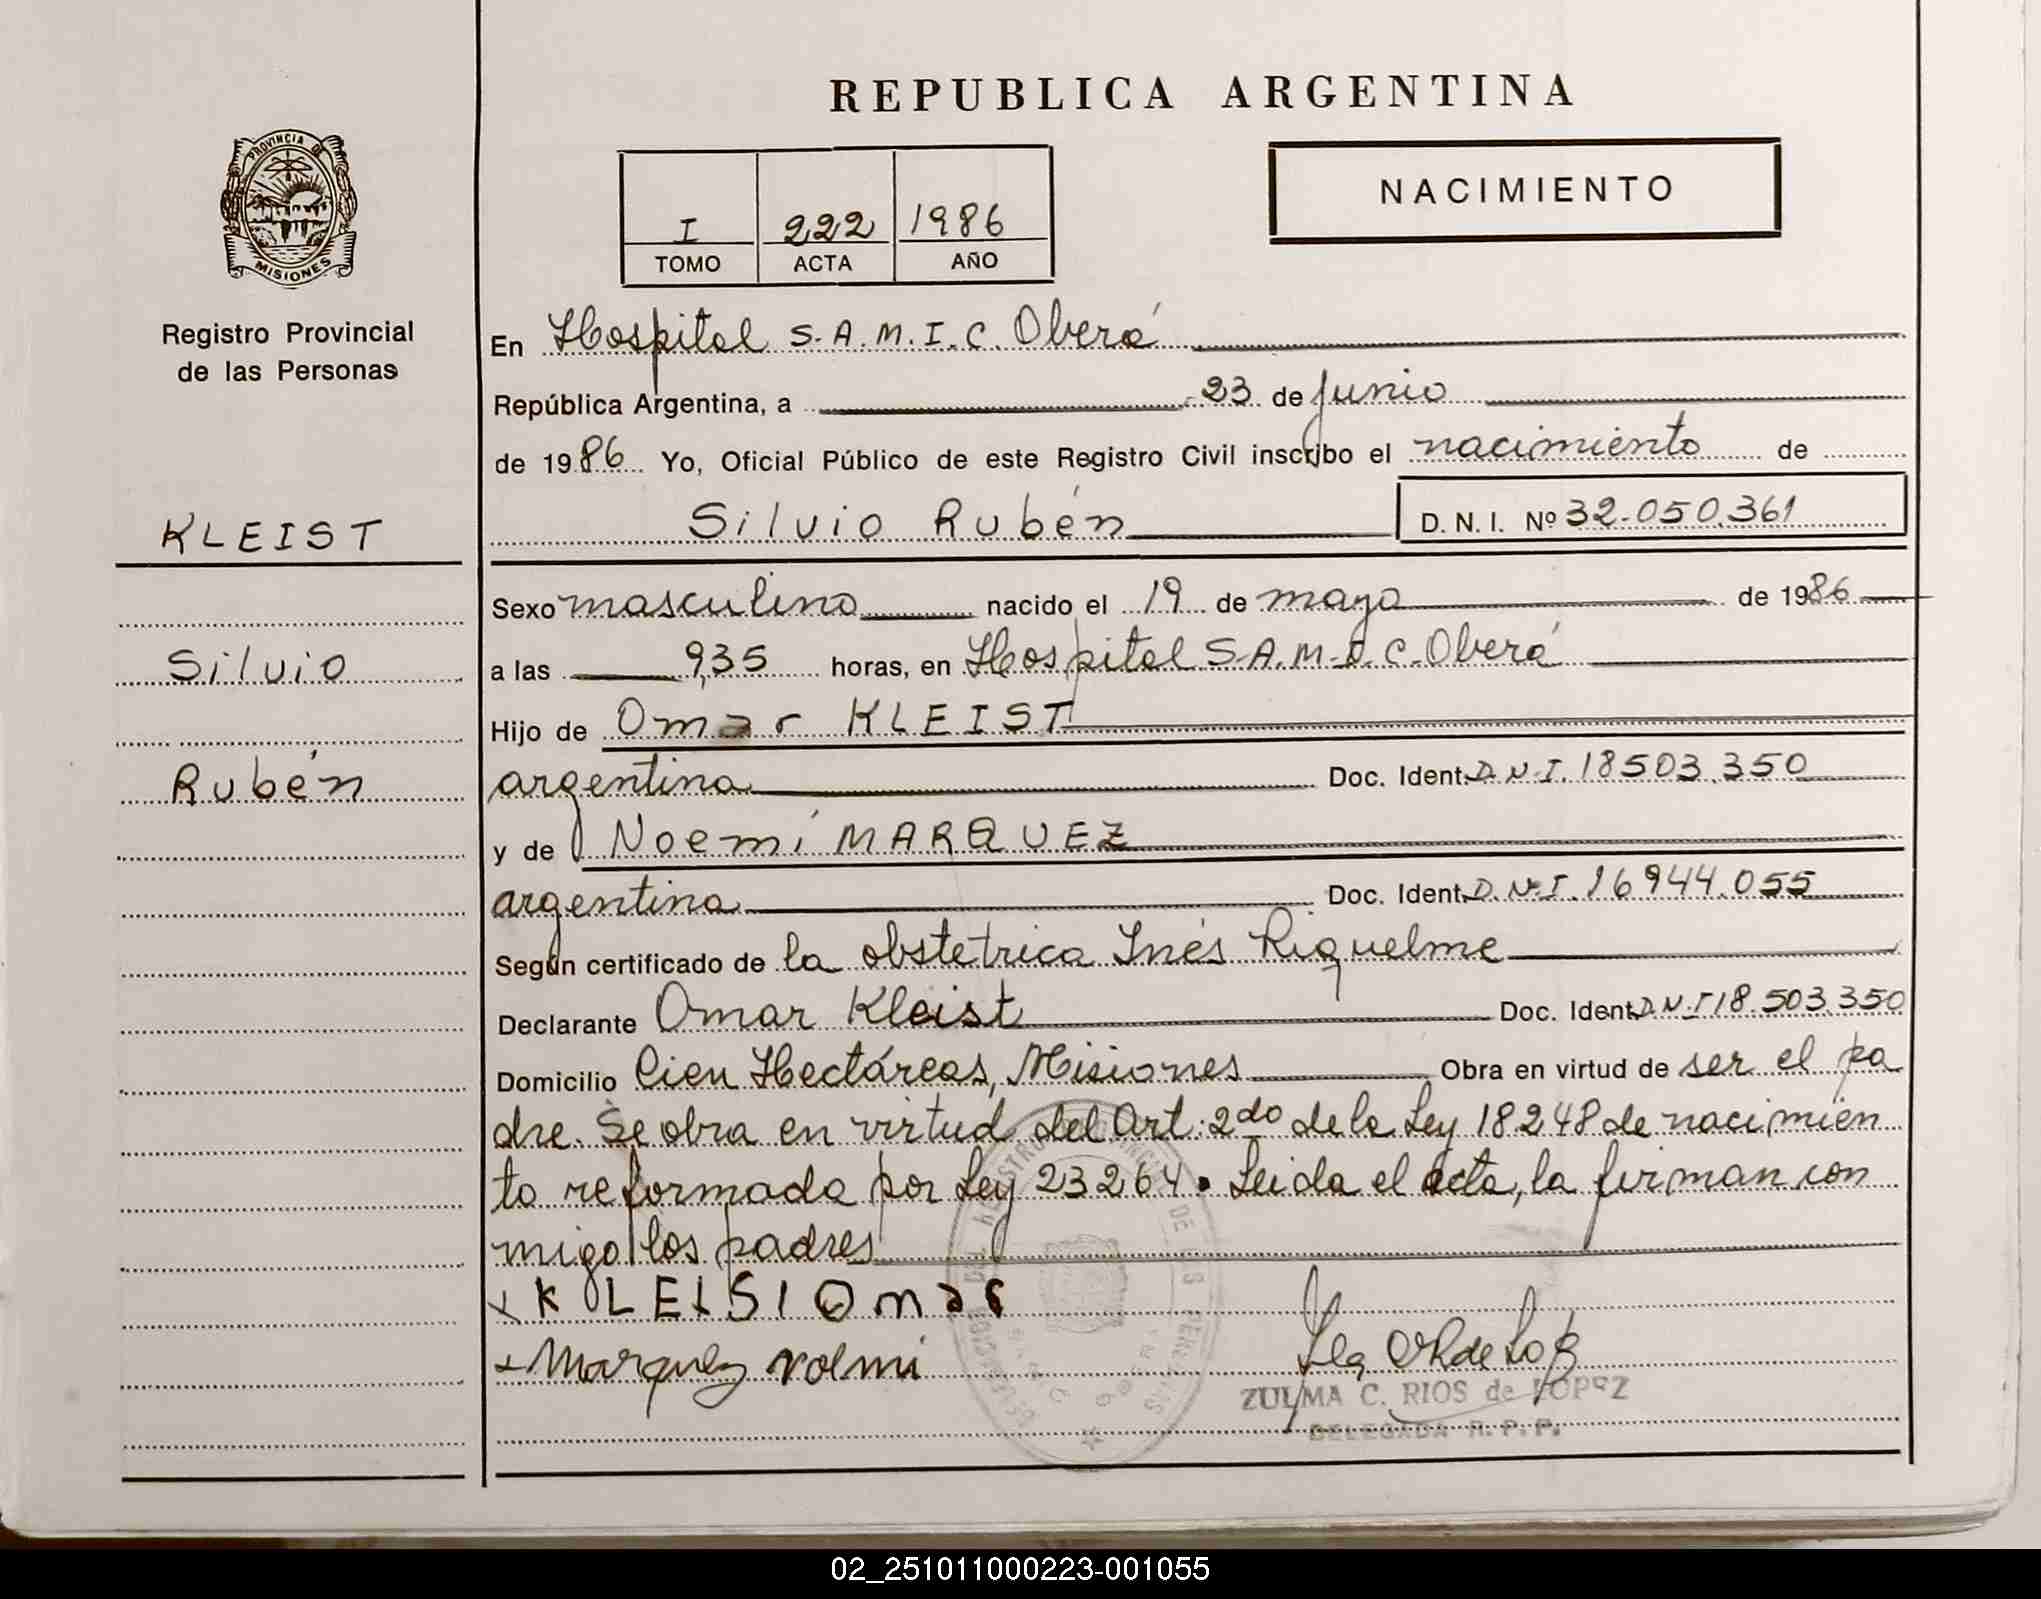 REPUBLICA ARGENTINA
NACIMIENTO
I 222 1986
TOMO ACTA AÑO
PROVINCIA DE
MISIONES
Registro Provincial
de las Personas
KLEIST
Silvio
Rubén
En Hospital S.A.M.I.C. Oberá
República Argentina, a 23 de junio
de 1986 Yo, Oficial Público de este Registro Civil inscribo el nacimiento de
Silvio Rubén D. N. I. Nº 32.050.361
Sexo masculino nacido el 19 de mayo de 1986
a las 9,35 horas, en Hospital S.A.M.I.C. Oberá
Hijo de Omar KLEIST
argentina Doc. Ident. D.N.I. 18503.350
y de Noemí MARQUEZ
argentina Doc. Ident. D.N.I. 16944.055
Según certificado de la obstetrica Inés Riquelme
Declarante Omar Kleist Doc. Ident. D.N.I 18.503.350
Domicilio Cien Hectáreas, Misiones Obra en virtud de ser el pa
dre. Se obra en virtud del Art. 2do de la Ley 18248 de nacimien
to reformada por Ley 23264. Leida el acta, la firman con
migo los padres
x KLEIST Omar
x Marquez noemi
ZULMA C. RIOS de LOPEZ
DELEGADA R. P. P.
02_251011000223-001055